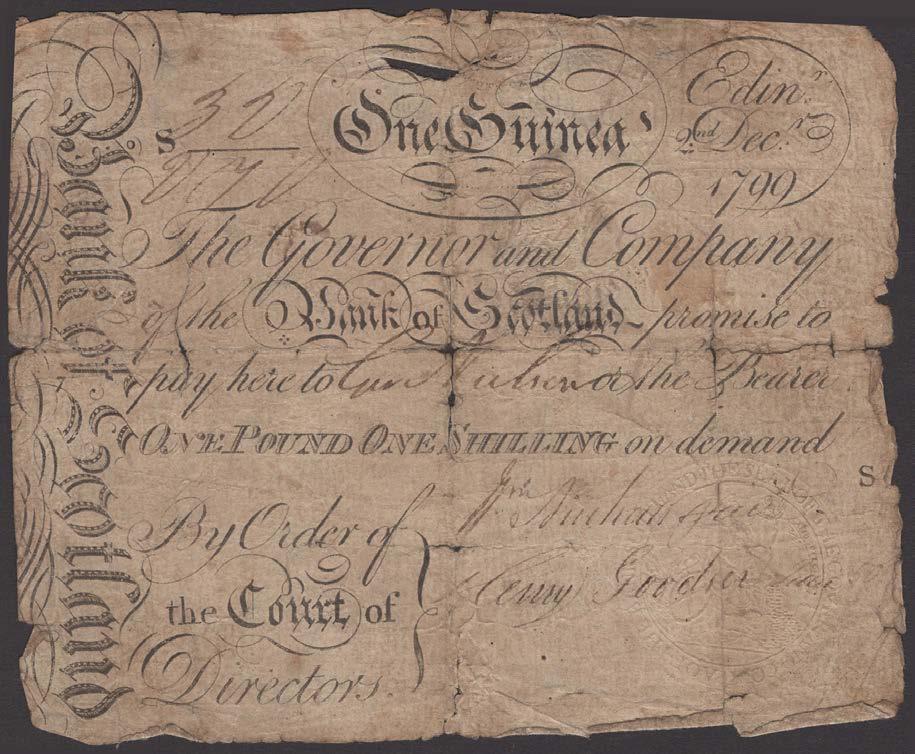 Bank of Scotland
S
One Guinea
Edinr.
2nd Decr.
1799
The Governor and Company
of the Bank of Scotland promise to
pay here to or the Bearer
ONE POUND ONE SHILLING on demand
S
By Order of
the Court of
Directors.
Henry